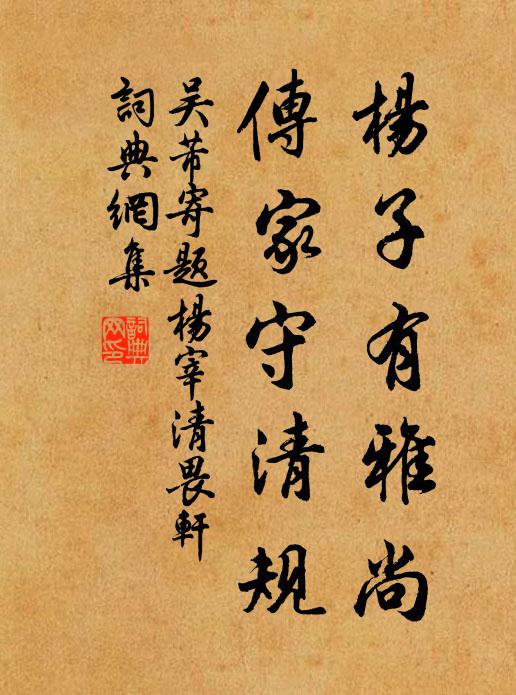 楊子有雅尚
傳家守清規
吳芾寄題楊宰清畏軒
詞典網集
詞典網印